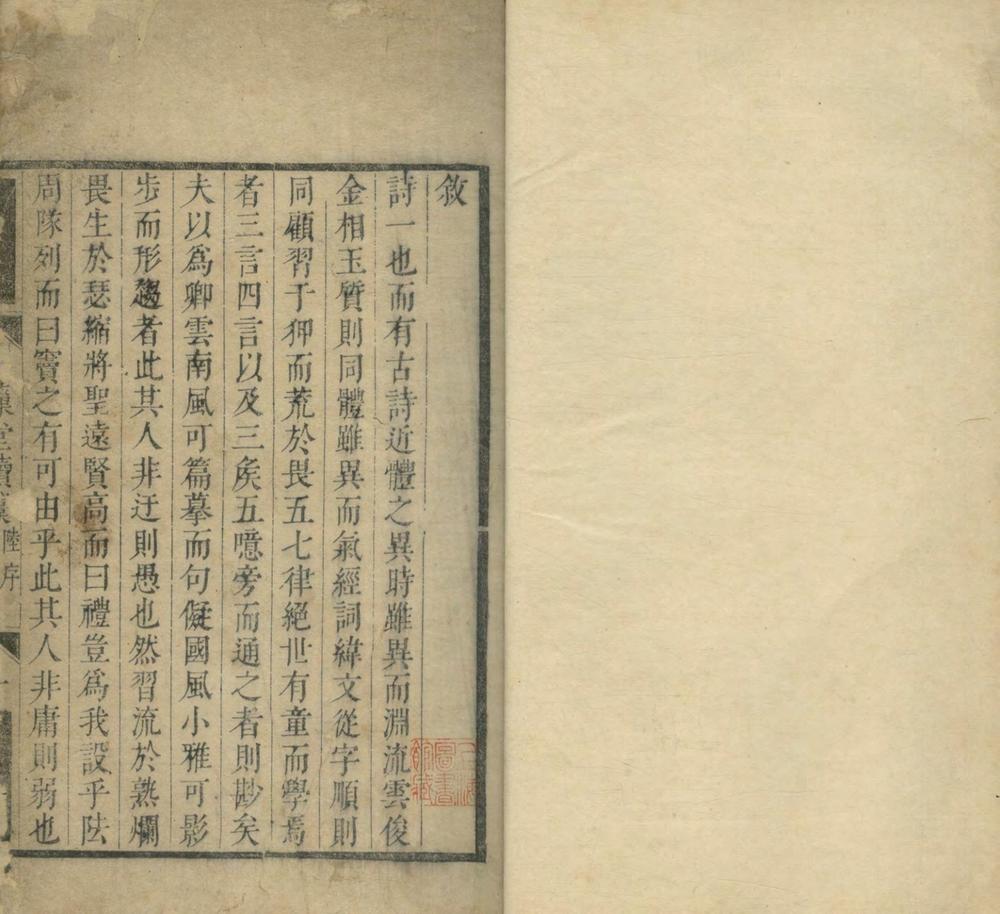 敘
詩一也而有古詩近體之異時雖異而淵流雲俊
金相玉質則同體雖異而氣經詞緯文從字順則
同顧習于狎而荒於畏五七律絕世有童而學焉
者三言四言以及三矦五噫旁而通之者則尠矣
夫以爲卿雲南風可篇摹而句儗國風小雅可影
步而形趨者此其人非迂則愚也然習流於熟爛
畏生於瑟縮將聖遠賢高而曰禮豈爲我設乎阹
周隊列而曰竇之有可由乎此其人非庸則弱也
堂讀 陸序
圖書館藏